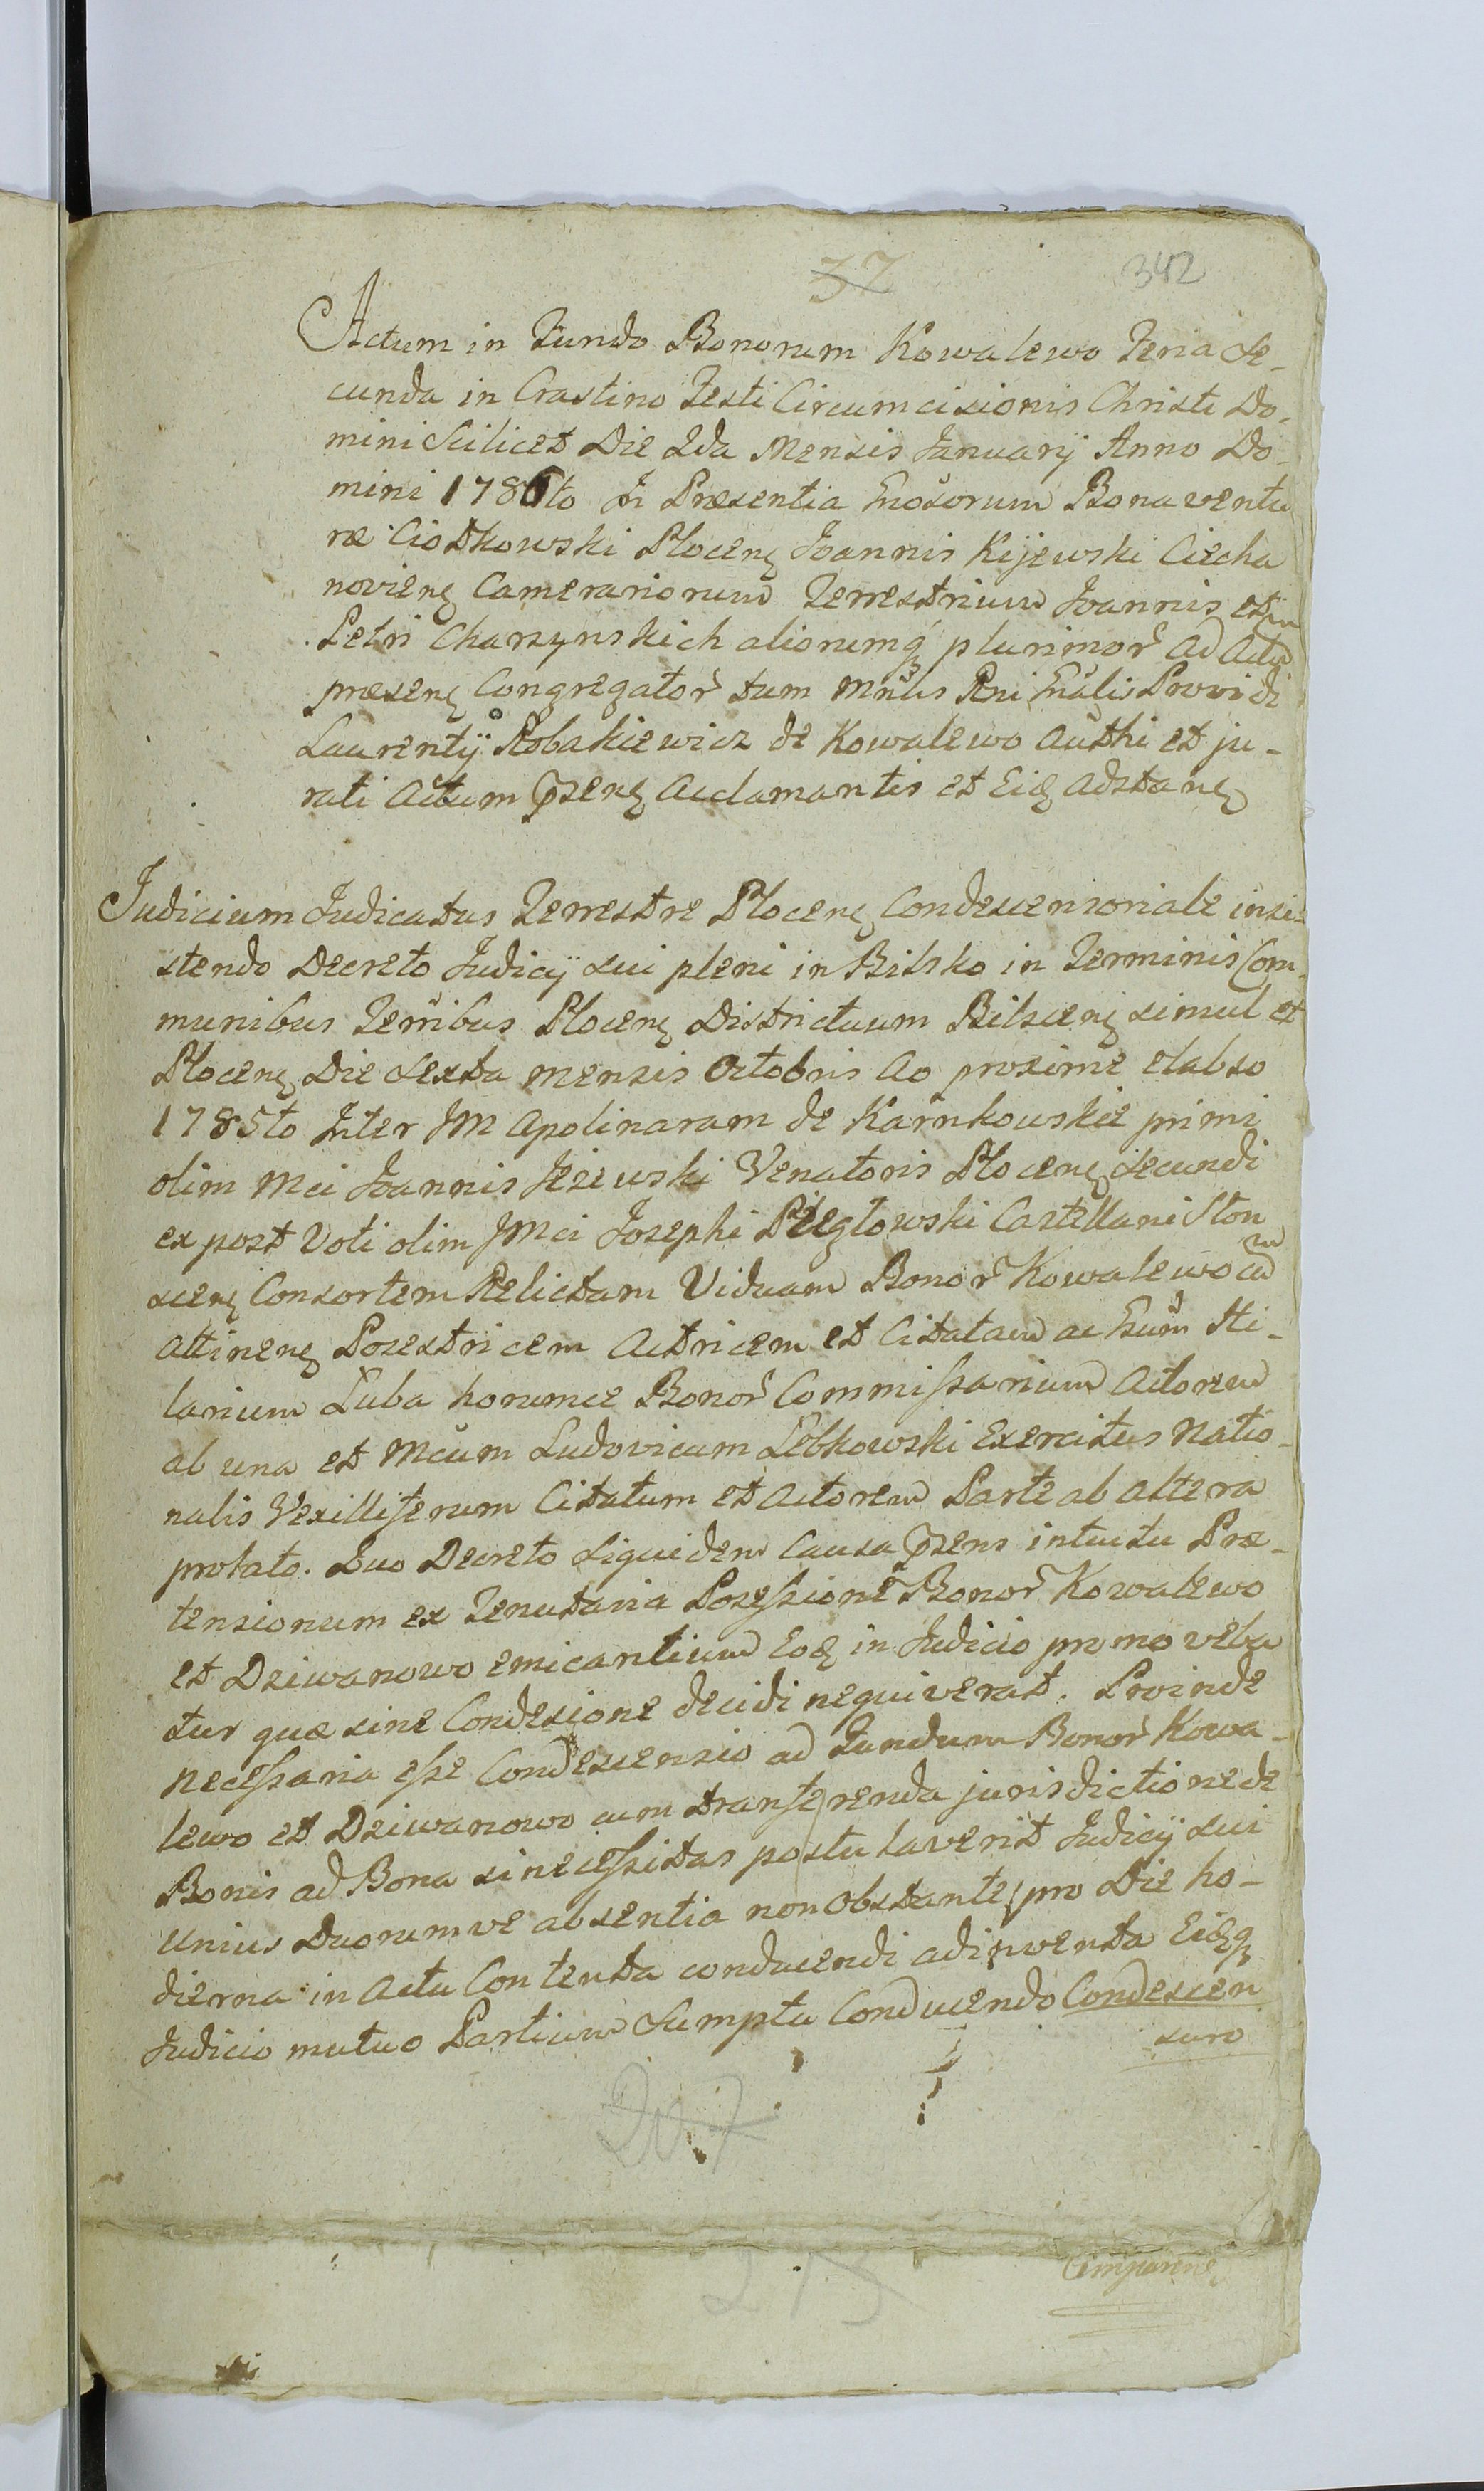 37
342
Actum in Fundo Bonorum Kowalewo Feria Se-
cunda in Crastino Festi Circumcisionis Christi Do-
mini Scilicet Die 2da Mensis Januarij Anno Do-
mini 1786to In Præsentia Gnosorum Bonaventu
ræ Ciotkowski Plocen Joannis Kijewski Ciecha
novien Camerariorum Terrestrium Joannis et
Petri Charzynskich aliorumq plurimor ad Actum
præsen Congregator tum Mnlis Rni Gnalis Providi
Laurentij Robakiewicz de Kowalewo Authi et ju-
rati Actum pzen Acclamantis et Eid Adstan
Judicium Judicatus Terrestre Plocen Condescensoriale insi-
stendo Decreto Judicij sui pleni in Bilsko in Terminis Com-
munibus Terribus Plocen Districtuum Bilscen simul et
Plocen Die Sexta mensis Octobris Ao proxime elabso
1785to Inter JM Apolinaram de Karnkowskie primi
olim Mci Joannis Jeżewski Venatoris Plocen Secundi
ex post Voti olim JMci Josephi Pięgłowski Castellani Slon
scen Consortem Relictam Viduam Bonor Kowalewo cum
attinen Posestricem Actricem et Citatam ac Gnum Hi-
larium Luba horumce Bonor Commissarium Actorem
ab una et Mcum Ludovicum Lebkowski Exercitus Natio-
nalis Vexilliferum Citatum et Actorem Parte ab altera
prolato. Quo Decreto Siquidem Causa pzens intuitu Præ-
tensionum ex Tenutaria Posessione Bonor Kowalewo
et Dziwanowo emicantium Eod in Judicio promoveba
tur quæ sine Condesione decidi nequiverat. Proinde
necessaria esse Condescensio ad Fundum Bonor Kowa-
lewo et Dziwanowo cum transferenda jurisdictione de
Bonis ad Bona si necessitas postulaverit Judicij sui
unius Duorumve absentia non Obstante pro Die ho-
dierna in Actu Contenta conducendi adinventa Eidq
Judicio mutuo Partium Sumptu Conducendo Condescen
suro
207
215
Comparen